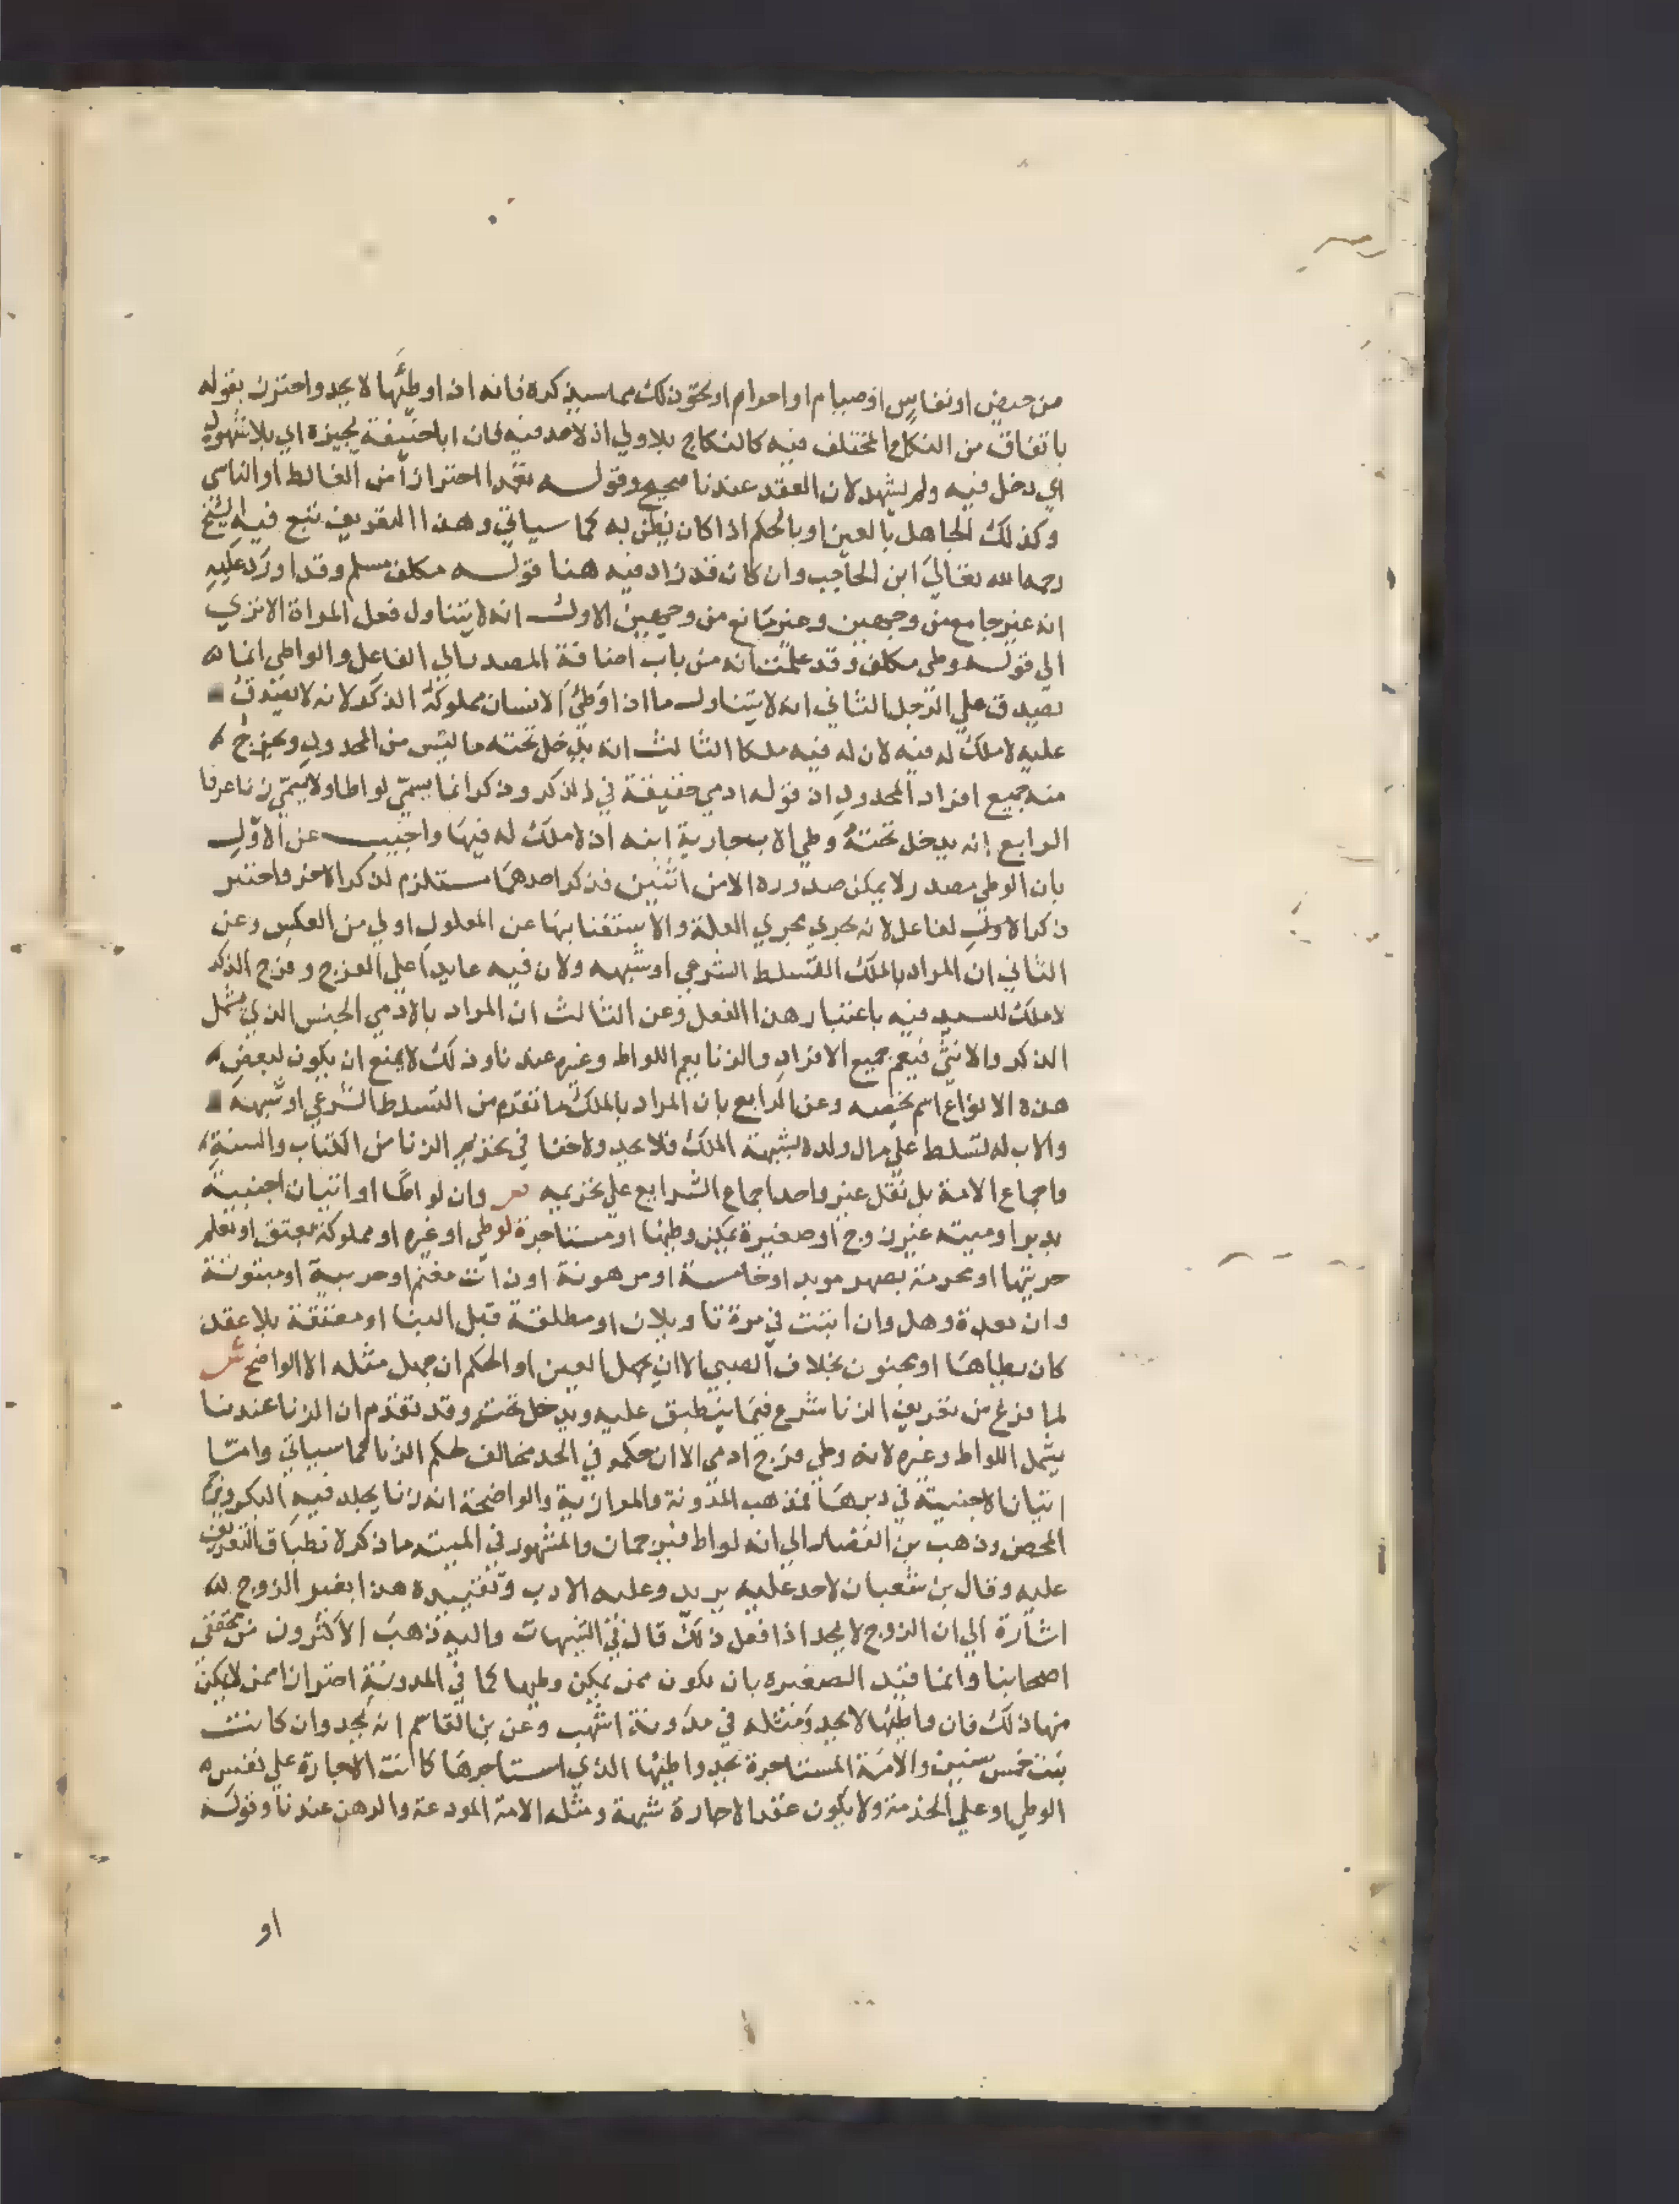 من حيض او نفاس او صيام او احرام او نحو ذلك مما سيذكره فانه اذا وطئها لا يحد واحترز بقوله
باتفاق من النكاح المختلف فيه كالنكاح بلا ولي اذ لا حد فيه فان ابا حنيفة يجيزه اي بلا شهود
اي دخل فيه ولم يشهد لان العقد عندنا صحيح وقوله تعمدا احترازا من الغالط او الناسي
وكذلك الجاهل بالعين او بالحكم اذا كان يظن به كما سياتي وهذا التعريف تبع فيه الشيخ
رحمه الله تعالي ابن الحاجب وان كان قد زاد فيه هنا قوله مكلف مسلم وقد اورد عليه
انه غير جامع من وجهين وغير مانع من وجهين الاول انه لا يتناول فعل المراة الا تري
الي قوله وطي مكلف وقد علمت انه من باب اضافة المصدر الي الفاعل والواطي انما
يصدق علي الرجل الثاني انه لا يتناول ما اذا وطئ الانسان مملوكه الذكر لانه لا يصدق
عليه لا ملك له فيه لان له فيه ملكا الثالث انه يدخل تحته ما ليس من المحدود ويخرج
منه جميع افراد المحدود اذ قوله ادمي حقيقة في الذكر وذكر انما يسمي لواطا ولا يسمي زنا عرفا
الرابع انه يدخل تحته وطي الاب جارية ابنه اذ لا ملك له فيها واجيب عن الاول
بان الوطي مصدر لا يمكن صدوره الا من اثنين فذكر احدهما مستلزم لذكر الاخر واختير
ذكر الاول لفاعل لانه يجري مجري العلة والاستغنا بها عن المعلول اولي من العكس وعن
الثاني ان المراد بالملك التسلط الشرعي او شبهه ولان فيه عايدا علي الفرج وفرج الذكر
لا ملك للسيد فيه باعتبار هذا الفعل وعن الثالث ان المراد بالادمي الجنس الذي يشمل
الذكر والانثي فيعم جميع الافراد والزنا يعم اللواط وغيره عندنا وذلك لا يمنع ان يكون لبعض
هذه الانواع اسم يخصه وعن الرابع بان المراد بالملك ما تقدم من التسلط الشرعي او شبهه
والاب له تسلط علي مال ولده لشبهة الملك فلا يحد ولا خفا في تحريم الزنا من الكتاب والسنة
واجماع الامة بل نقل غير واحد اجماع الشرايع علي تحريمه وان لواطا او اتيان اجنبية
بدبر او ميتة غير زوج او صغيرة يمكن وطئها او مستاجرة لوطي او غيره او مملوكة تعتق او تعلم
حريتها او محرمة بصهر موبد او خامسة او مرهونة او ذات مغنم او حربية او مبتوتة
وان بعدة وهل وان ابتت في مرة تاويلان او مطلقة قبل البنا او معتقة بلا عقد
كان يطاها او مجنون بخلاف الصبي الا ان يجهل العين او الحكم ان جهل مثله الا الواضح ش
لما فرغ من تعريف الزنا شرع فيما ينطبق عليه ويدخل تحته وقد تقدم ان الزنا عندنا
يشمل اللواط وغيره لانه وطي فرج ادمي الا ان حكمه في الحد مخالف لحكم الزنا كما سياتي واما
اتيان الاجنبية في دبرها فمذهب المدونة والموازية والواضحة انه زنا يجلد فيه البكر ويرجم
المحصن وذهب بن القصار الي انه لواط فيرجمان والمشهور في الميتة ما ذكر لانطباق التعريف
عليه وقال بن شعبان لا حد عليه يريد وعليه الادب وتقييده هذا بغير الزوج
اشارة الي ان الزوج لا يحد اذا فعل ذلك قال في التنبيهات واليه ذهب الاكثرون من محققي
اصحابنا وانما قيد الصغيرة بان تكون ممن يمكن وطيها كما في المدونة احترازا ممن لا يمكن
منها ذلك فان واطئها لا يحد ومثله في مدونة اشهب وعن بن القاسم انه يحد وان كانت
بنت خمس سنين والامة المستاجرة يحد واطئها الذي استاجرها كانت الاجارة علي نفس
الوطي او علي الخدمة ولا يكون عقد الاجارة شبهة ومثله الامة المودعة والرهن عندنا وقوله
او